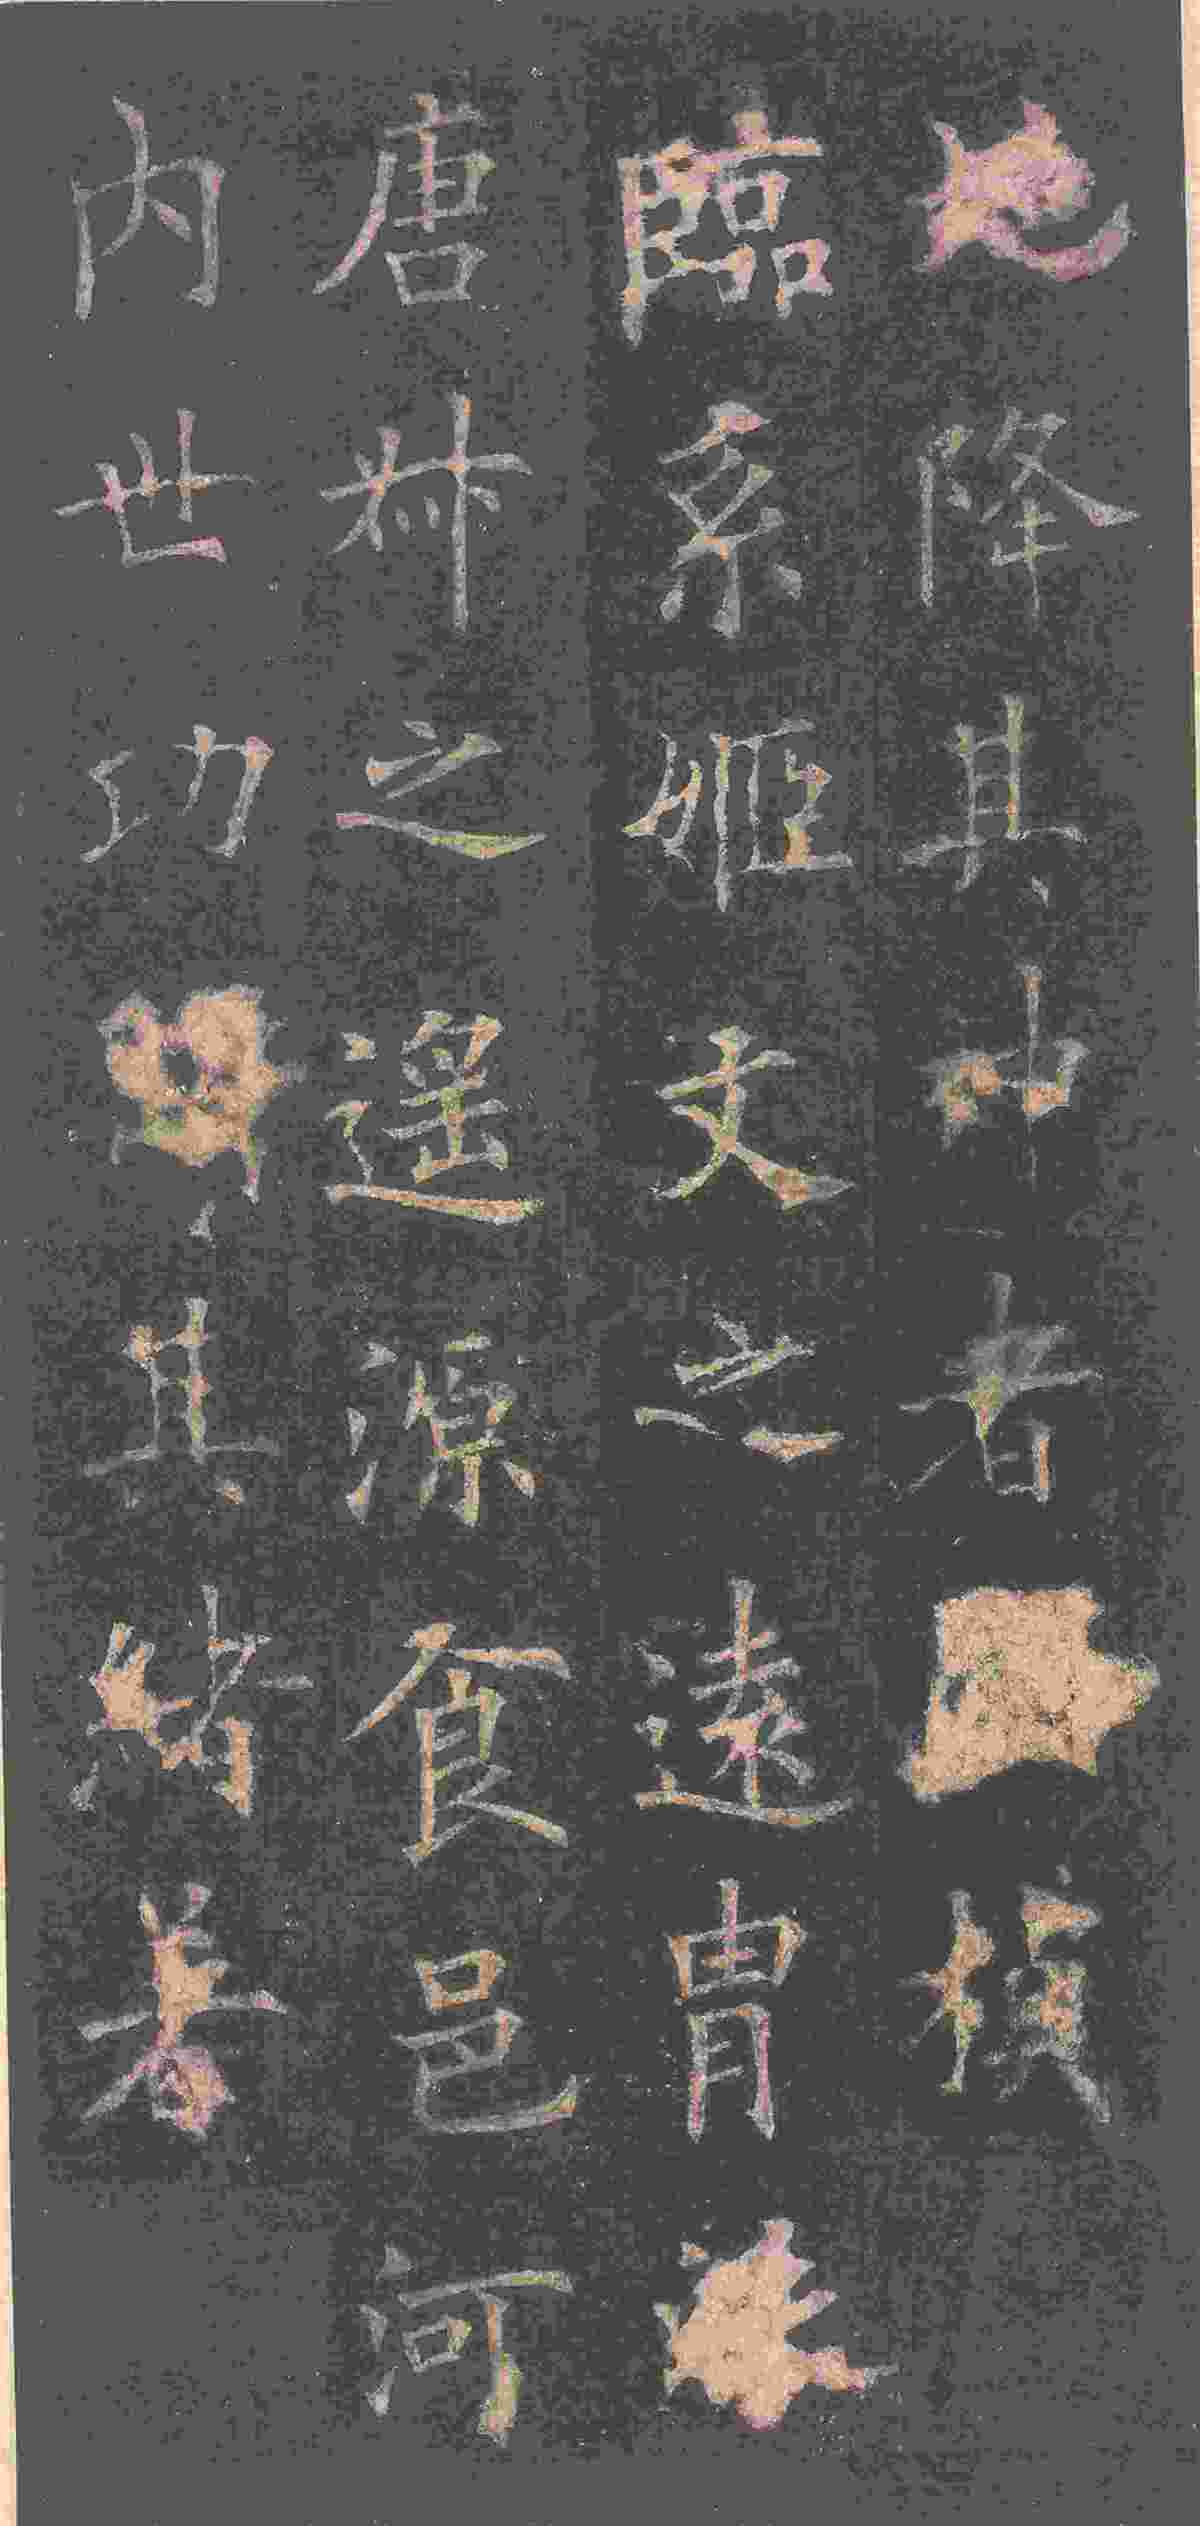 降其神者楨
臨系姬文之遠胄
唐叔之遥源食邑河
内世功其緒